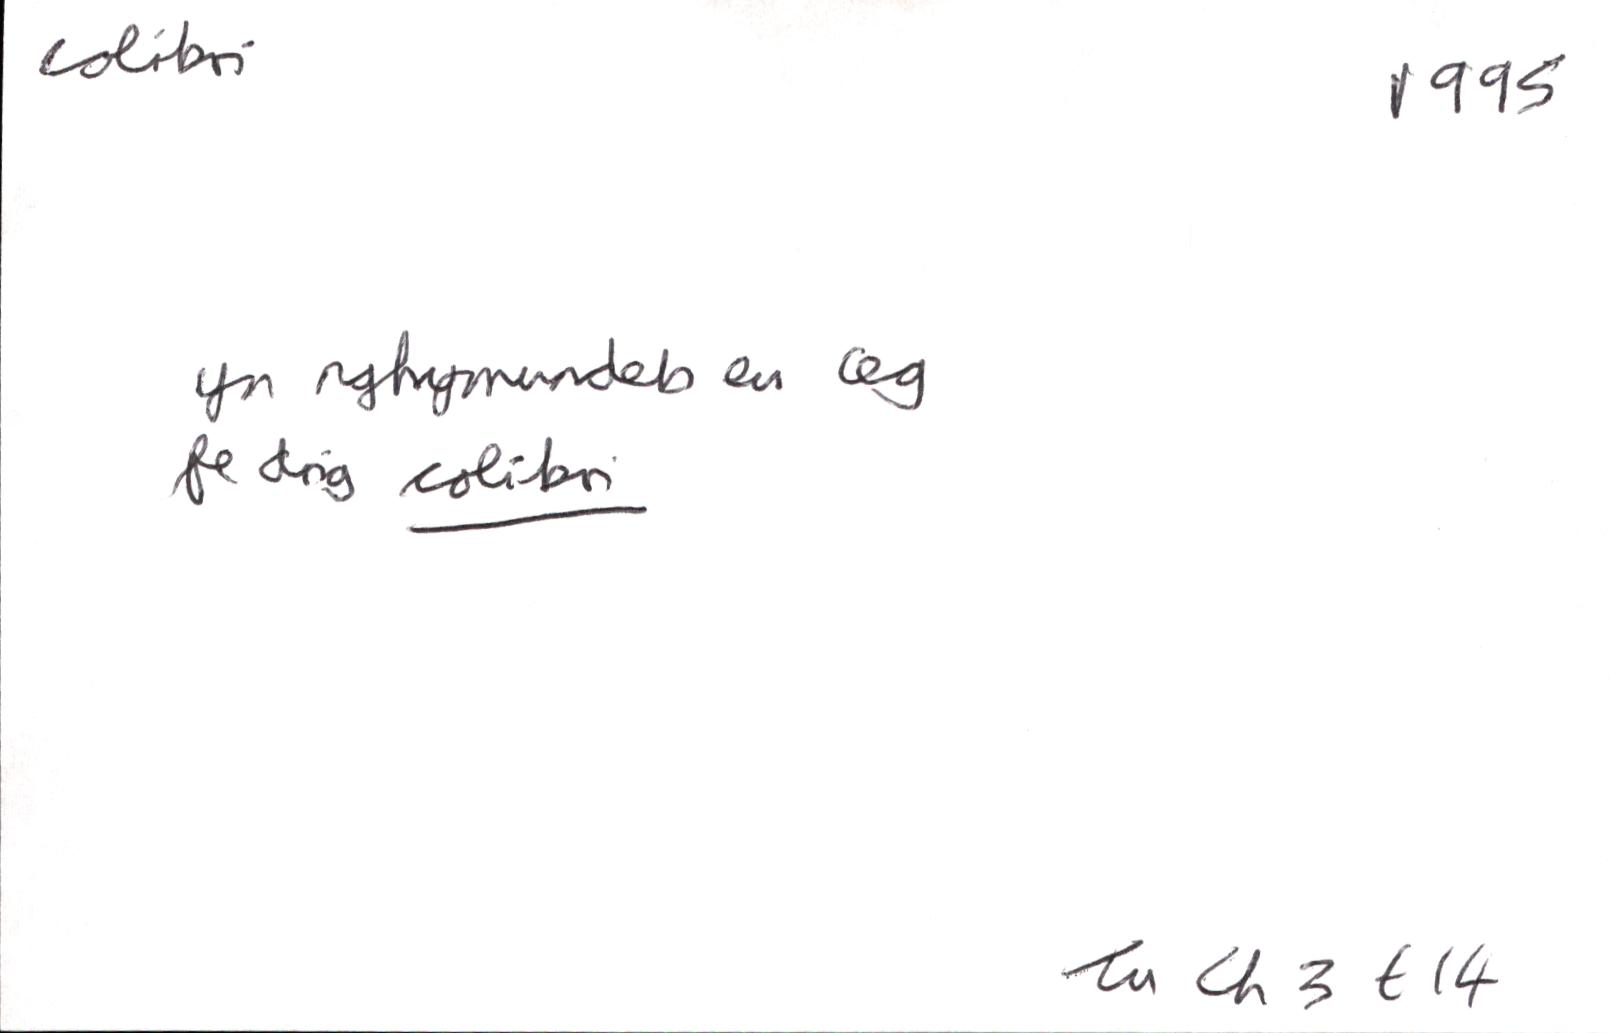 colibri
1995
yn nghymundeb eu ceg
fe drig colibri
Tu Ch 3 t 14